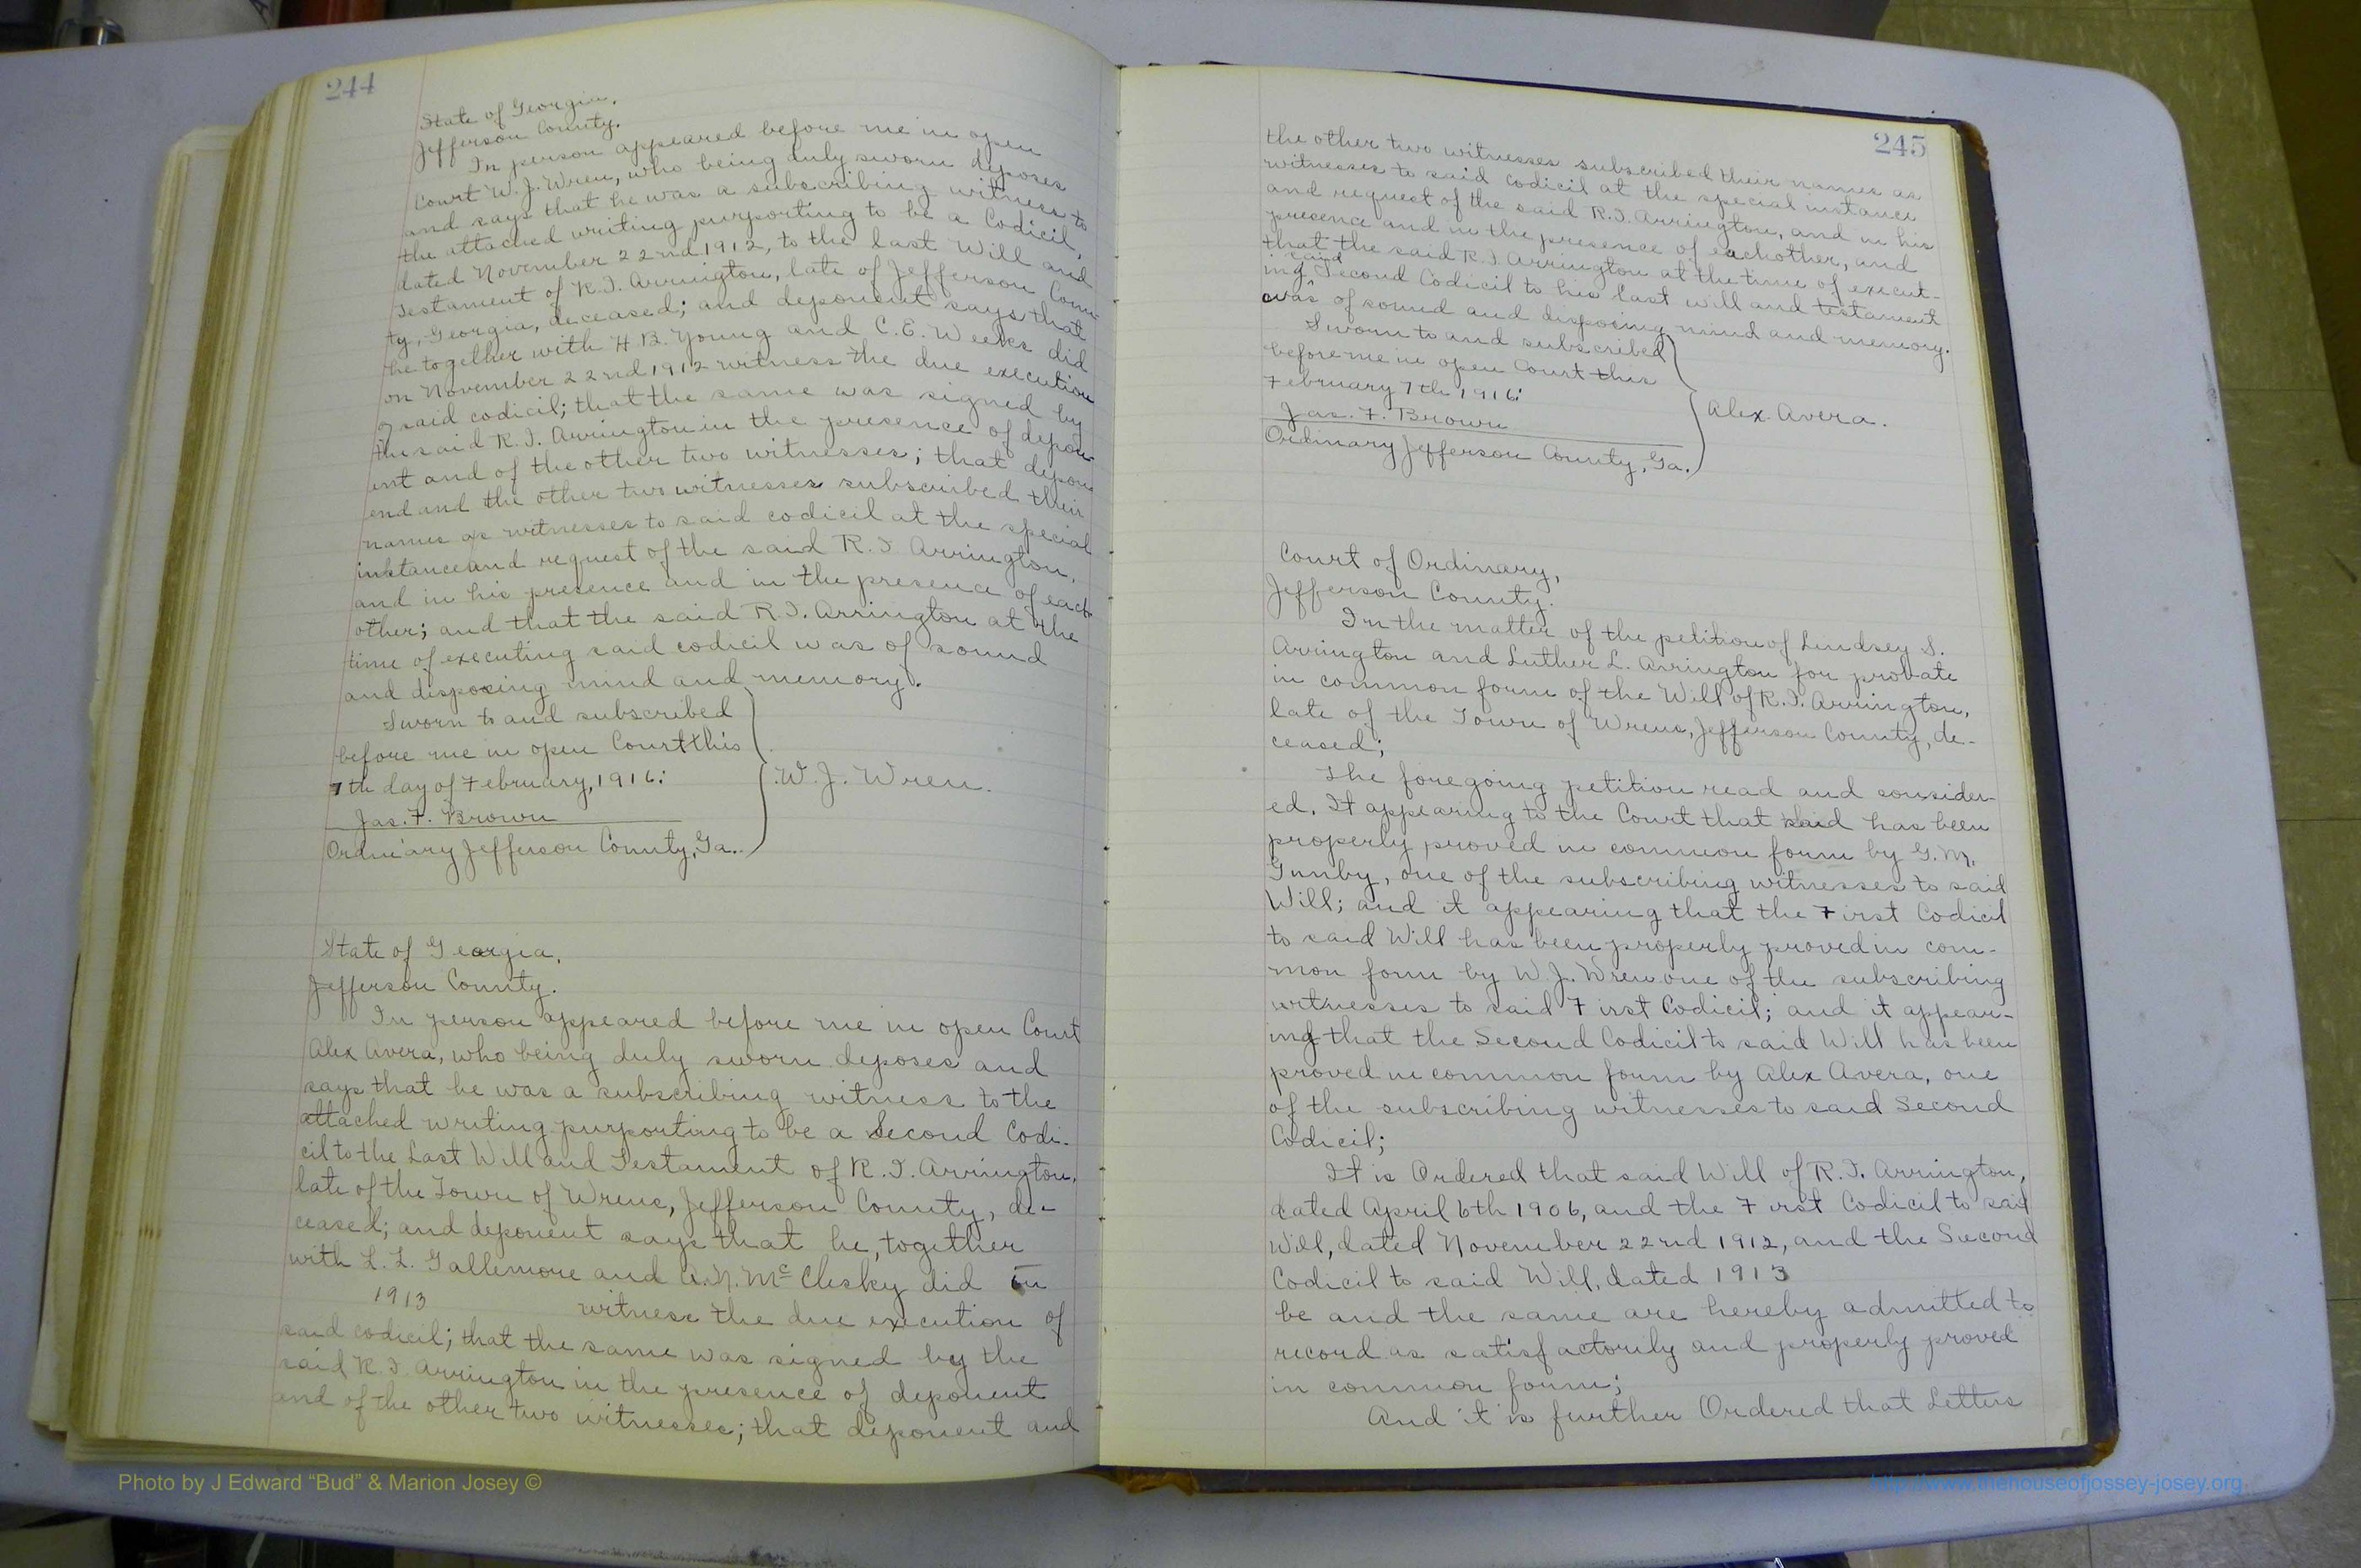 244
State of Georgia,
Jefferson County.
In person appeared before me in open
Court W. J. Wren, who being duly sworn deposes
and says that he was a subscribing witness to
the attached writing purporting to be a Codicil,
dated November 22nd 1912, to the last Will and
Testament of R. T. Arrington, late of Jefferson Coun-
ty, Georgia, deceased; and deponent says that
he together with H. B. Young and C. E. Weeks did
on November 22nd 1912 witness the due execution
of said codicil; that the same was signed by
the said R. T. Arrington in the presence of depon-
ent and of the other two witnesses; that depon-
end and the other two witnesses subscribed their
names as witnesses to said codicil at the special
instance and request of the said R. T. Arrington,
and in his presence and in the presence of each
other; and that the said R. T. Arrington at the
time of executing said codicil was of sound
and disposing mind and memory.
Sworn to and subscribed
before me in open Court this
7th day of February, 1916:
W. J. Wren.
Jas. F. Brown
Ordinary Jefferson County, Ga.
State of Georgia,
Jefferson County.
In person appeared before me in open Court
Alex Avera, who being duly sworn deposes and
says that he was a subscribing witness to the
attached writing purporting to be a Second Codi-
cil to the Last Will and Testament of R. T. Arrington,
late of the Town of Wrens, Jefferson County, de-
ceased; and deponent says that he, together
with L. L. Gallemore and A. N. McClesky did on
1913 witness the due execution of
said codicil; that the same was signed by the
said R. T. Arrington in the presence of deponent
and of the other two witnesses; that deponent and
245
the other two witnesses subscribed their names as
witnesses to said codicil at the special instance
and request of the said R. T. Arrington, and in his
presence and in the presence of eachother, and
that the said R. T. Arrington at the time of execut-
ing said Second Codicil to his last will and testament
was of sound and disposing mind and memory.
Sworn to and subscribed
before me in open Court this
February 7th 1916:
Jas. F. Brown
Alex. Avera.
Ordinary Jefferson County, Ga.
Court of Ordinary,
Jefferson County.
In the matter of the petition of Lindsey S.
Arrington and Luther L. Arrington for probate
in common form of the Will of R. T. Arrington,
late of the Town of Wrens, Jefferson County, de-
ceased;
The foregoing petition read and consider-
ed. It appearing to the Court that said has been
properly proved in common form by G. M.
Gunby, one of the subscribing witnesses to said
Will; and it appearing that the First Codicil
to said Will has been properly proved in com-
mon form by W. J. Wren one of the subscribing
witnesses to said First Codicil; and it appear-
ing that the Second Codicil to said Will has been
proved in common form by Alex Avera, one
of the subscribing witnesses to said Second
Codicil;
It is Ordered that said Will of R. T. Arrington,
dated April 6th 1906, and the First Codicil to said
Will, dated November 22nd 1912, and the Second
Codicil to said Will, dated 1913
be and the same are hereby admitted to
record as satisfactorily and properly proved
in common form;
And it is further Ordered that Letters
Photo by J Edward “Bud” & Marion Josey ©
http://www.thehouseofjossey-josey.org